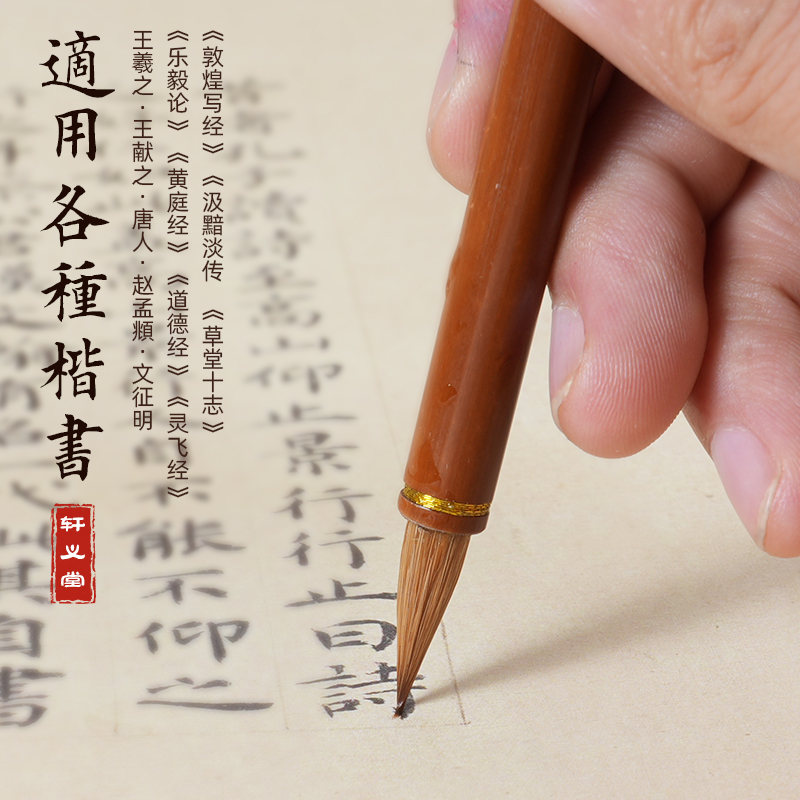 適用各種楷書
《敦煌写经》《汲黯淡传 《草堂十志》
《乐毅论》《黄庭经》《道德经》《灵飞经》
王羲之·王献之·唐人·赵孟頫·文征明
轩义堂
高山仰止景行行止曰詩
能不仰之
其自書